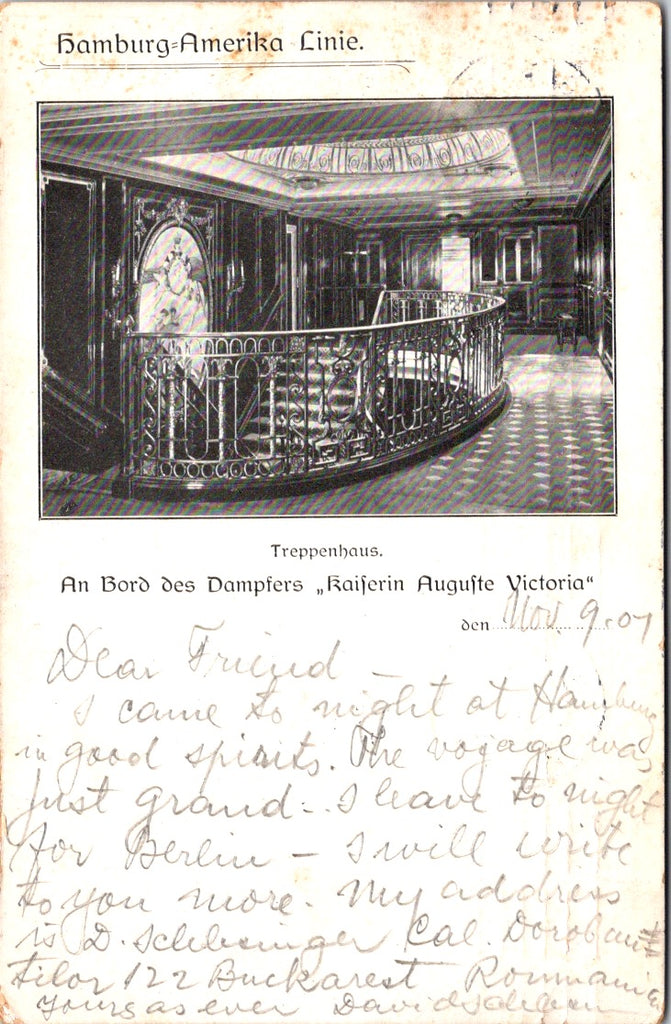 Hamburg-Amerika Linie.
Treppenhaus.
An Bord des Dampfers „Kaiſerin Auguſte Victoria“
den Nov. 9-07
Dear Friend –
I came to night at Hamburg
in good spirits. The voyage was
just grand - I leave to night
for Berlin – I will write
to you more. My address
is D. Schlesinger Cal. Doroban
tilor 122 Buckarest Roumania
yours as ever David